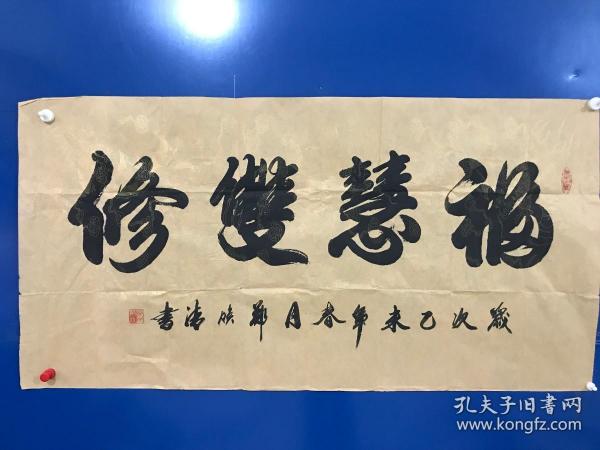 福慧雙修
歲次乙未年春月鄭欣清書
孔夫子旧書网
www.kongfz.com